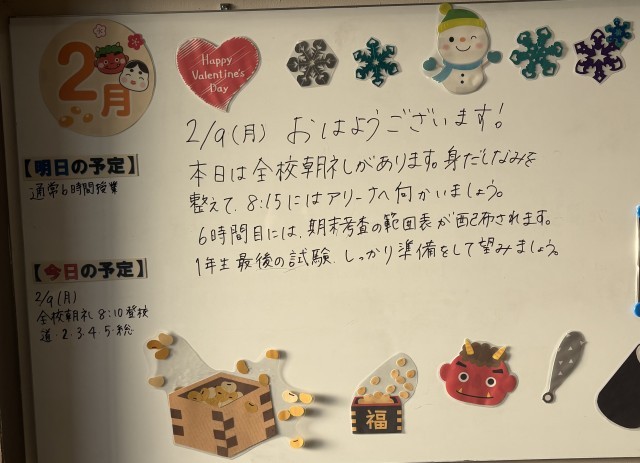 2月
Happy
Valentine's
Day
2/9(月) おはようございます!
本日は全校朝礼があります。身だしなみを
整えて、8:15にはアリーナへ向かいましょう。
6時間目には、期末考査の範囲表が配布されます。
1年生最後の試験、しっかり準備をして望みましょう。
【明日の予定】
通常6時間授業
【今日の予定】
2/9(月)
全校朝礼 8:10登校
道・2・3・4・5・総
福